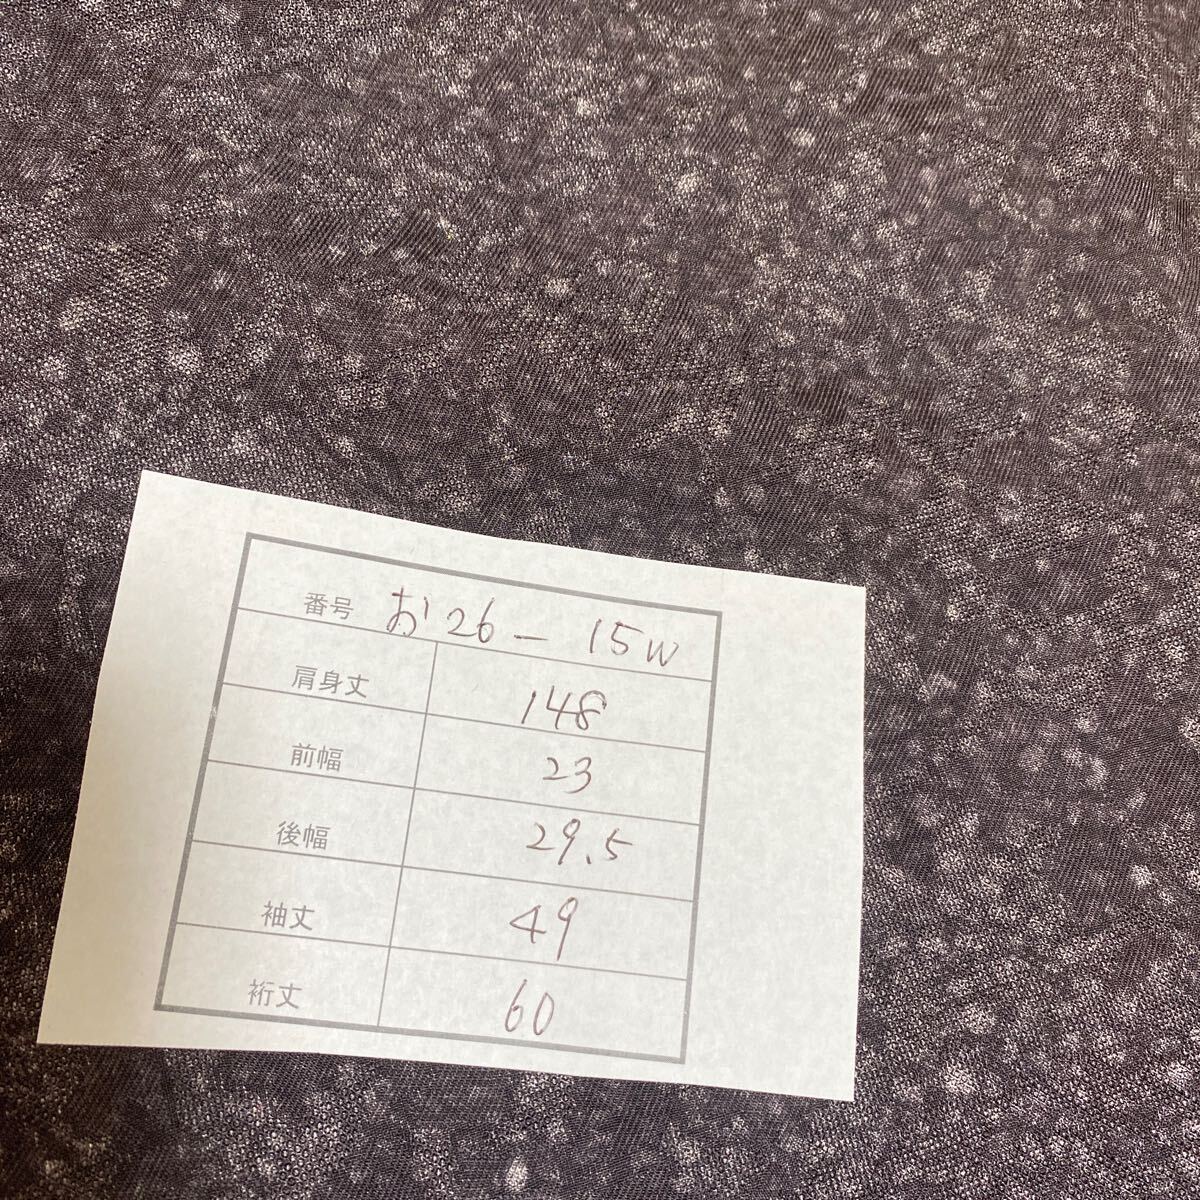 番号 お26-15W
肩身丈 148
前幅 23
後幅 29.5
袖丈 49
裄丈 60